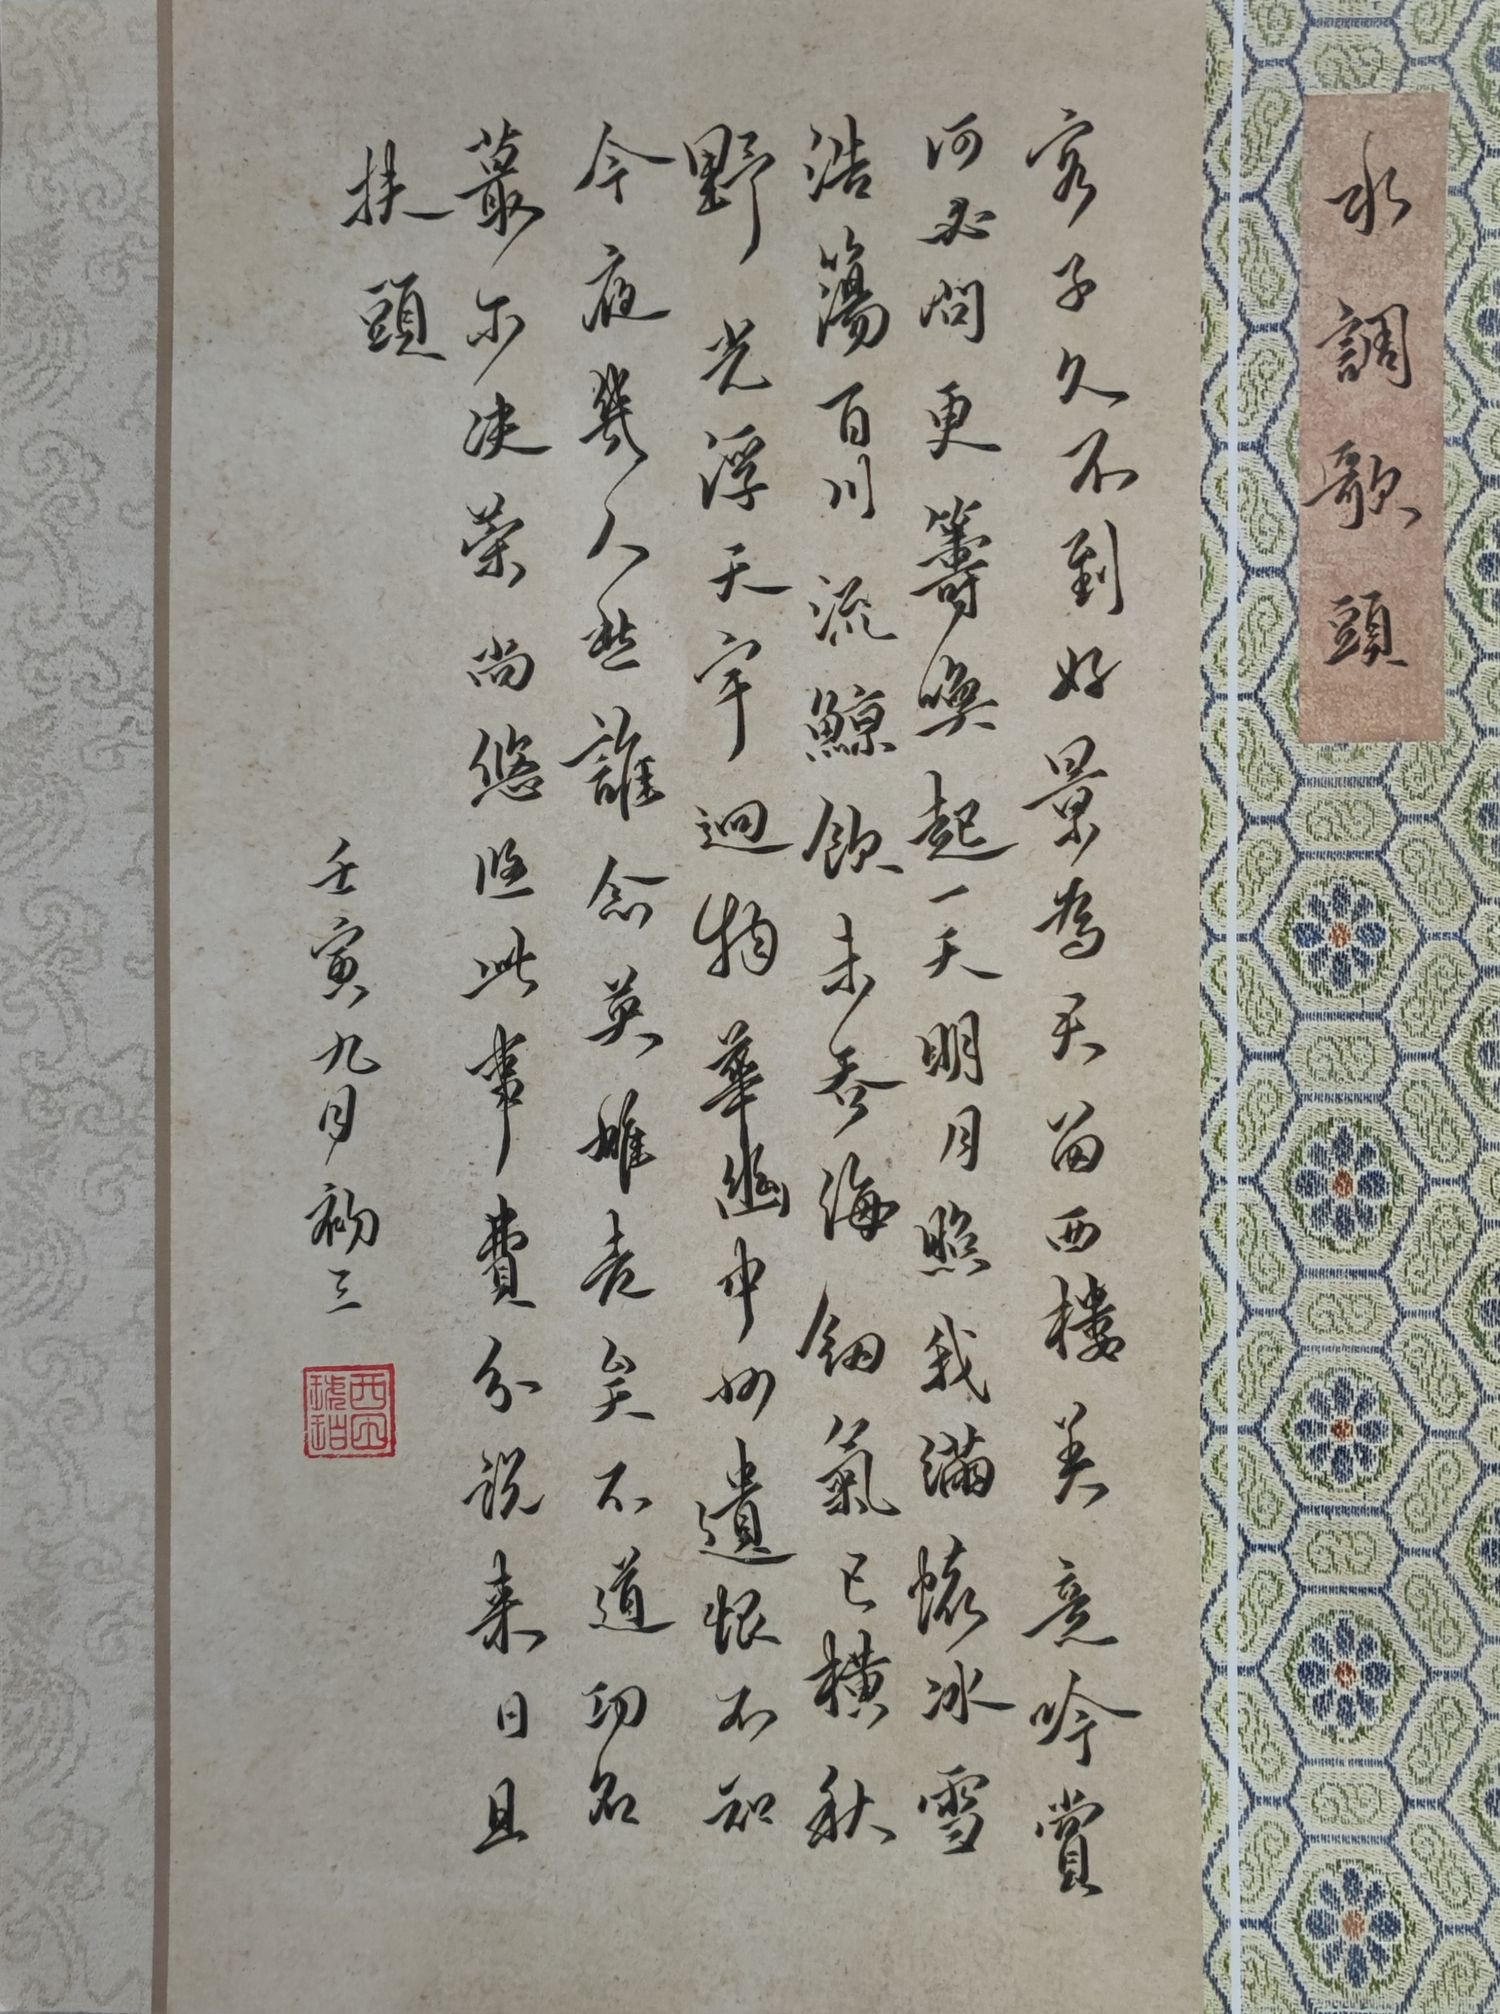 水調歌頭
客子久不到好景為君留西樓着意吟賞
何必问更籌喚起一天明月照我滿懷冰雪
浩蕩百川流鯨飲未吞海劍氣已橫秋
野光浮天宇迥物華幽中州遺恨不知
今夜幾人愁誰念英雄老矣不道功名
蕞尔决策尚悠悠此事費分説来日且
扶頭
壬寅九月初三